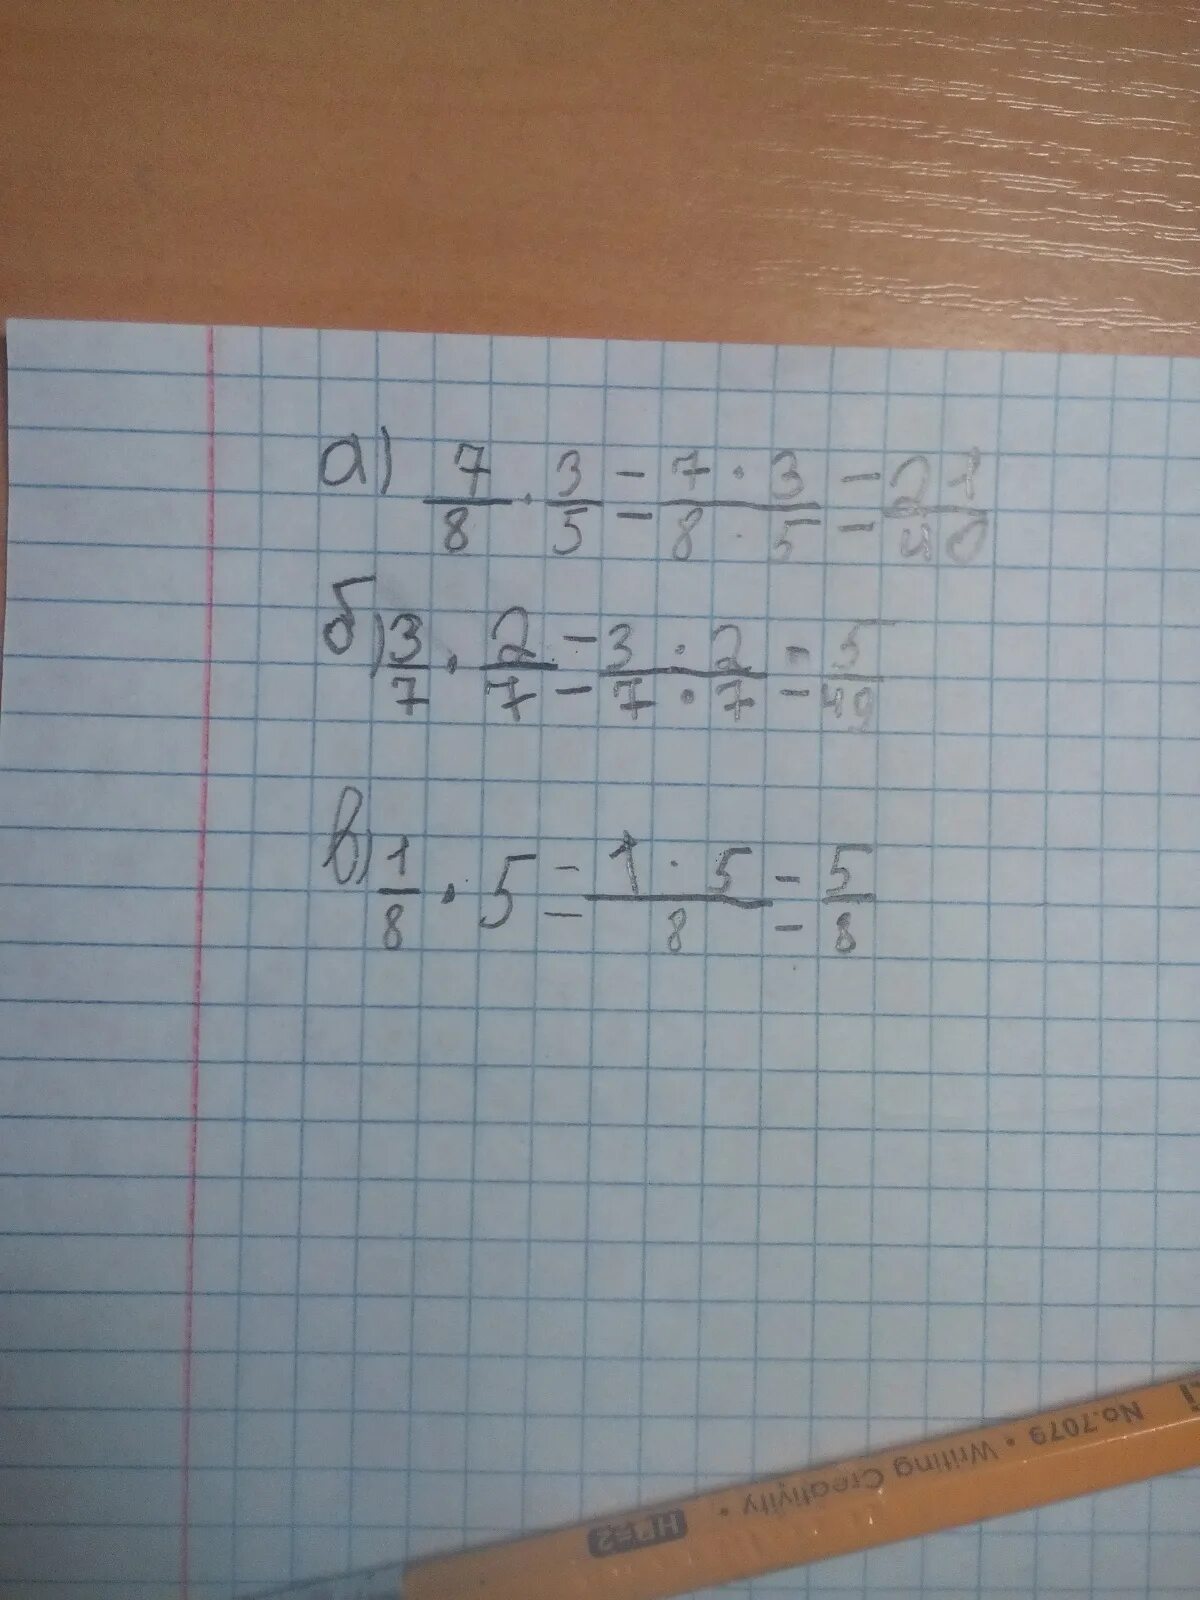 а) 7/8 · 3/5 = 7 · 3 / 8 · 5 = 21/40
б) 3/7 · 2/7 = 3 · 2 / 7 · 7 = 5/49
в) 1/8 · 5 = 1 · 5 / 8 = 5/8
No.7079 • Writing Creativity •